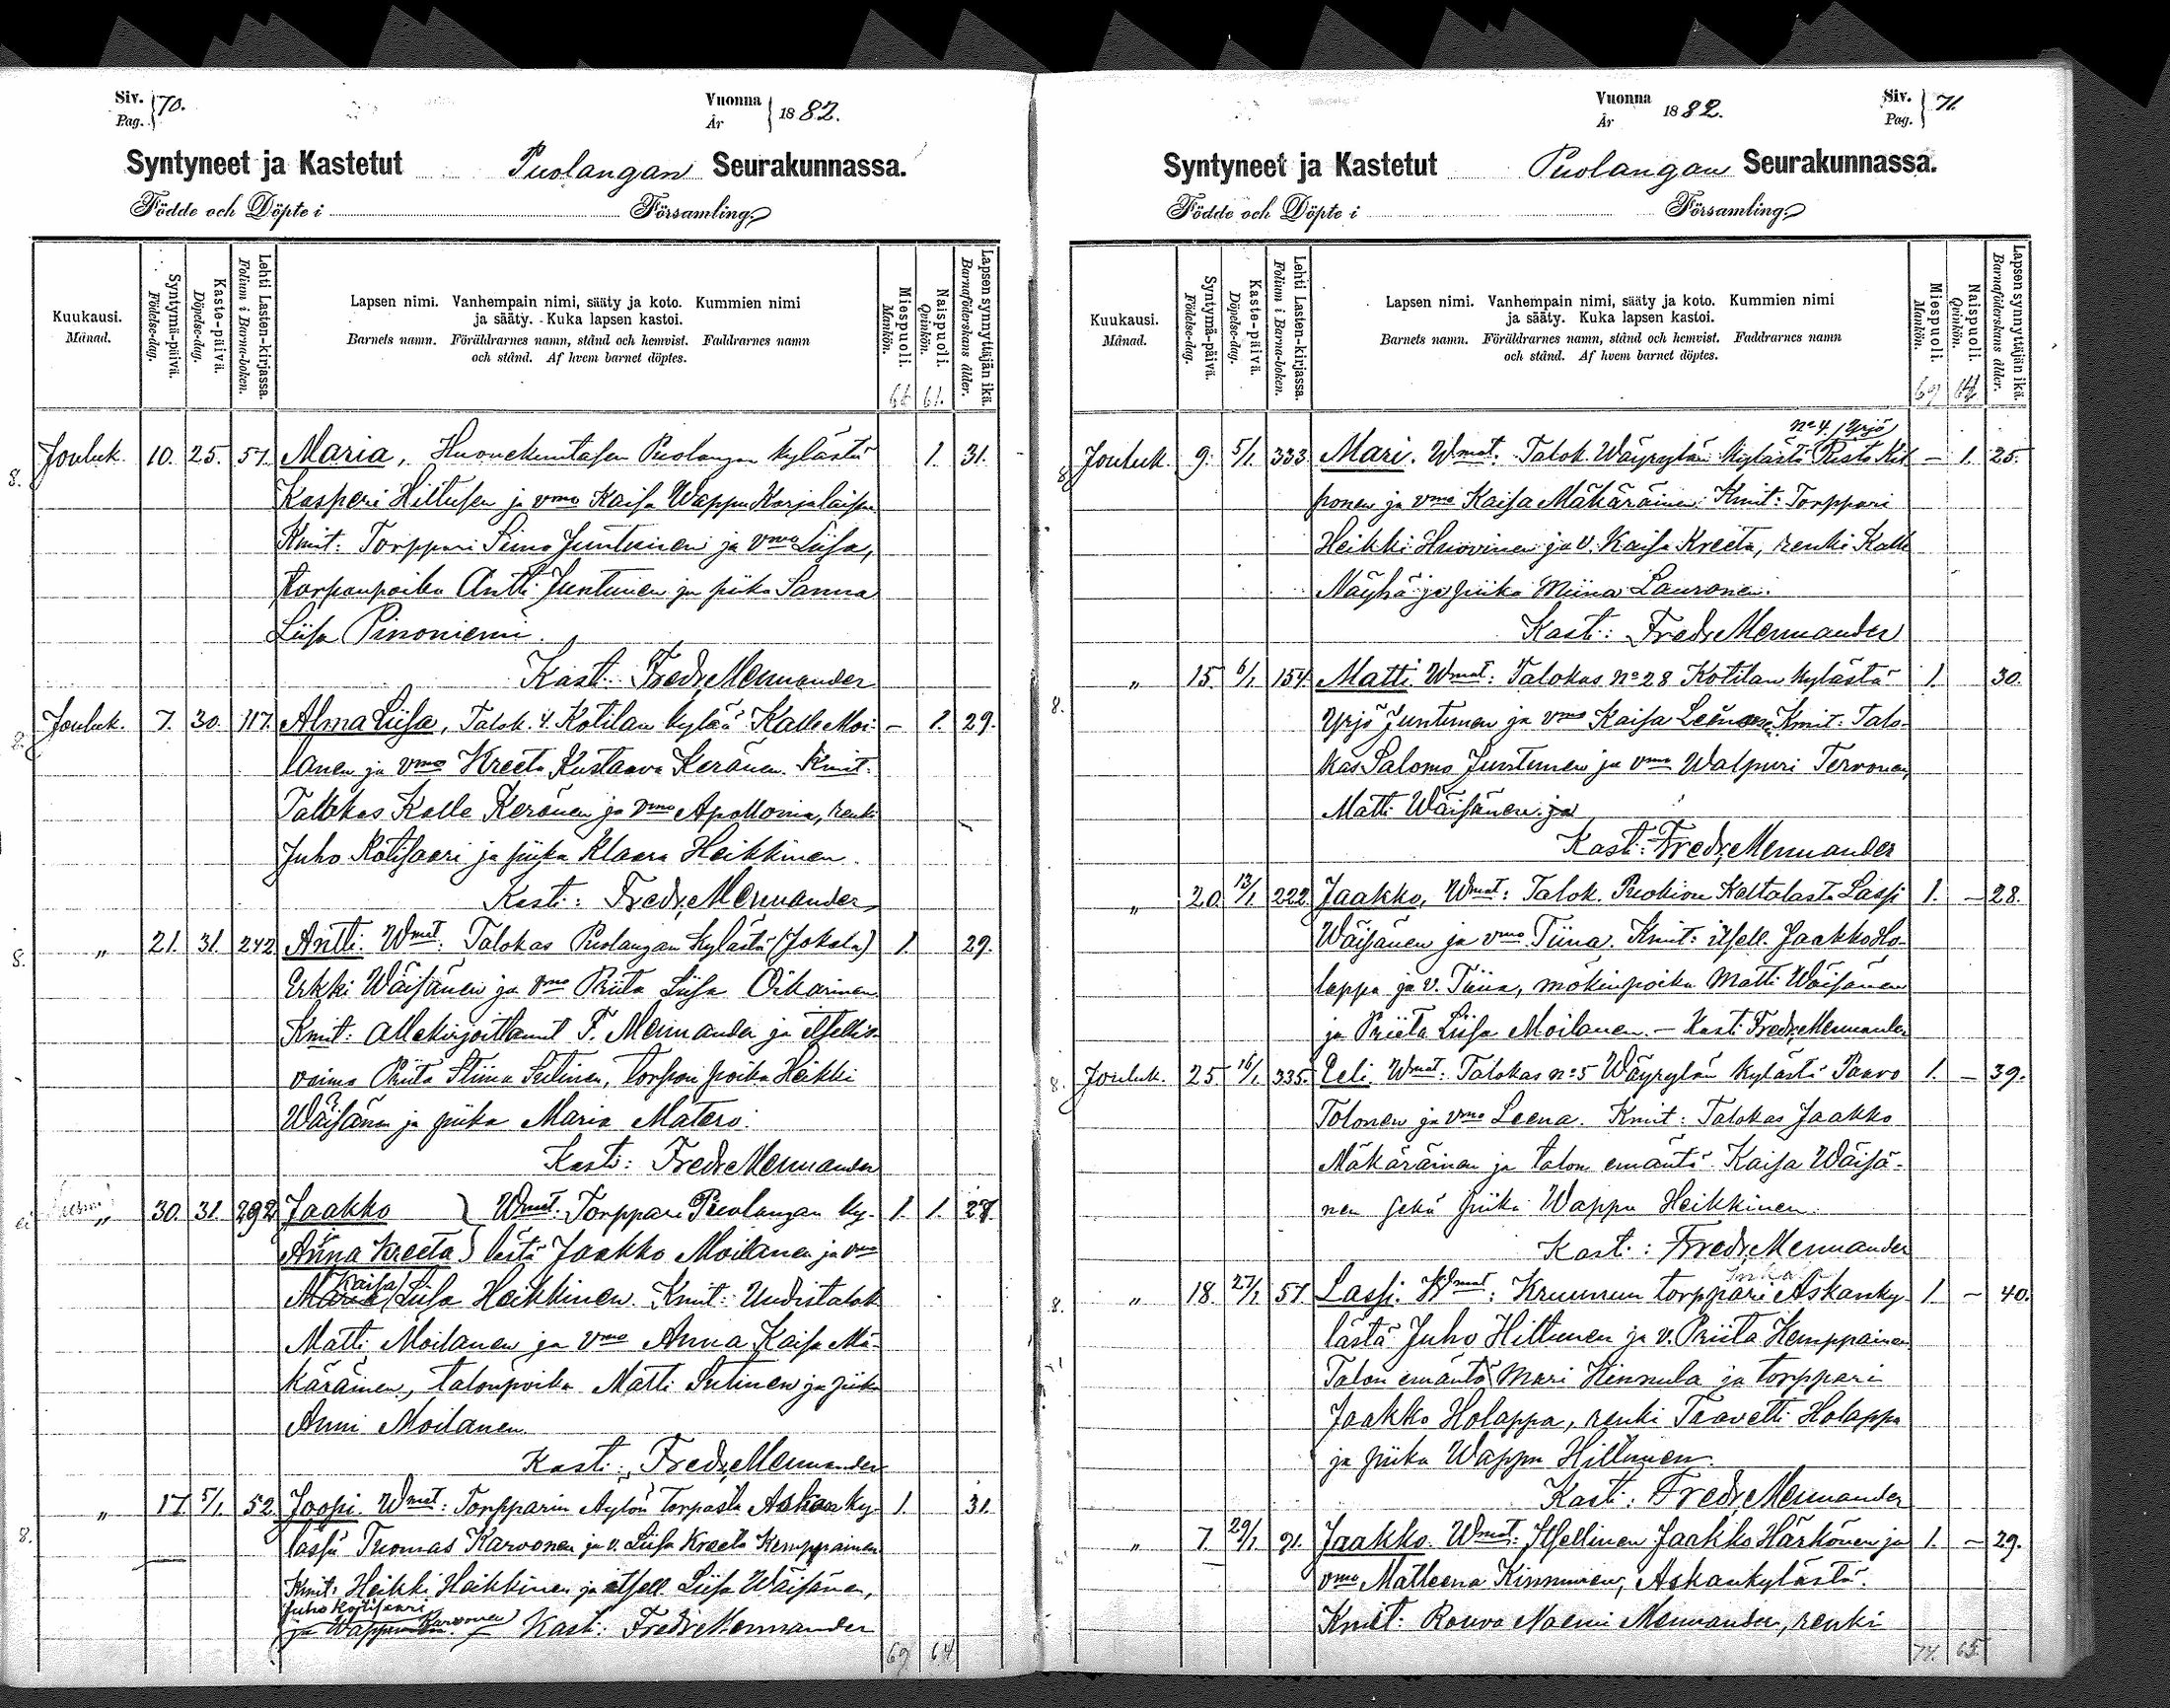 Siv. Pag. } 70.
Vuonna År } 1882.
Syntyneet ja Kastetut Puolangan Seurakunnassa.
Födde och Döpte i Församling.
Kuukausi. Månad.
Syntymä-päivä. Födelse-dag.
Kaste-päivä. Döpelse-dag.
Lehti Lasten-kirjassa. Folium i Barna-boken.
Lapsen nimi. Vanhempain nimi, sääty ja koto. Kummien nimi
ja sääty. Kuka lapsen kastoi.
Barnets namn. Föräldrarnes namn, stånd och hemvist. Faddrarnes namn
och stånd. Af hvem barnet döptes.
Miespuoli. Mankön.
Naispuoli. Qvinkön.
Lapsen synnyttäjän ikä. Barnaföderskans ålder.
66 61.
8. Jouluk. 10. 25. 51. Maria, Huonekuntasen Puolangan kylästä 1. 31.
Kasperi Hiltusen ja vmo Kaisa Wappu Karjalaisen
Kmit: Torppari Simo Juntunen ja vmo Liisa,
torpanpoika Antti Juntunen ja piika Sanna
Liisa Pinoniemi.
Kast. Fredr. Mennander
8. Jouluk. 7. 30. 117. Alma Liisa, Talok. 4. Kotilan kylää Kalle Moi- – 1. 29.
lanen ja vmo Kreeta Kustaava Keränen. Kmit:
Talokas Kalle Keränen ja vmo Apollonia, renki
Juho Kotisaari ja piika Klaara Heikkinen.
Kasti: Fredr. Mennander
8. „ 21. 31. 242 Antti. Wmat: Talokas Puolangan kylästä (Jokela) 1. 29.
Erkki Wäisänen ja vmo Priita Liisa Oikarinen.
Kmit: allekirjoittanut F. Mennander ja itsellis-
vaimo Priita Stiina Sutinen, torpan poika Heikki
Wäisänen ja piika Maria Matero.
Kasti: Fredr. Mennander
ei „ 30. 31. 292 Jaakko } Wmat: Torppari Puolangan ky- 1. 1. 27.
Anna Kreeta } lästä Jaakko Moilanen ja vmo
Kaisa
Maria Liisa Heikkinen. Kmit: Uudistalok.
Matti Moilanen ja vmo Anna Kaisa Mä-
käräinen, talonpoika Matti Sutinen ja piika
Anni Moilanen.
Kasti: Fredr. Mennander
8. „ 17. 5/1. 52. Joopi. Wmat: Torpparin torpasta Askanky- 1. 31.
lässä Tuomas Karvonen ja v. Liisa Kreeta Kemppainen
Kmit: Heikki Heikkinen ja itsell. Liisa Wäisänen,
Juho Kotisaari
ja Wappu Karvonen Kasti: Fredr. Mennander
69 64
Vuonna År 1882.
Siv. Pag. } 71.
Syntyneet ja Kastetut Puolangan Seurakunnassa.
Födde och Döpte i Församling.
Kuukausi. Månad.
Syntymä-päivä. Födelse-dag.
Kaste-päivä. Döpelse-dag.
Lehti Lasten-kirjassa. Folium i Barna-boken.
Lapsen nimi. Vanhempain nimi, sääty ja koto. Kummien nimi
ja sääty. Kuka lapsen kastoi.
Barnets namn. Föräldrarnes namn, stånd och hemvist. Faddrarnes namn
och stånd. Af hvem barnet döptes.
Miespuoli. Mankön.
Naispuoli. Qvinkön.
Lapsen synnyttäjän ikä. Barnaföderskans ålder.
69 64
No 4 / Yrjö
8. Jouluk. 9. 5/1. 333 Mari. Wmat. Talok. Wäyrylän kylästä – 1. 25.
ponen ja vmo Kaisa Mäkäräinen. Kmit: Torppari
Heikki Huovinen ja v. Kaisa Kreeta, renki Kalle
Näyhä ja piika Miina Lauronen.
Kasti: Fredr. Mennander
8. „ 15. 6/1. 154 Matti. Wmat: Talokas No 28 Kotilan kylästä 1. 30.
Yrjö Juntunen ja vmo Kaisa Kmit: Talo-
kas Salomo Juntunen ja vmo Walpuri Tervonen,
Matti Wäisänen ja
Kasti: Fredr. Mennander
„ 20. 13/1 222 Jaakko, Wmat: Talok. Puokion Kaltalasta Lassi 1. – 28.
Wäisänen ja vmo Tiina. Kmit: itsell. Jaakko Ho-
lappa ja v. Tiina, mökinpoika Matti Wäisänen
ja Priita Liisa Moilanen. – Kasti Fredr. Mennander
8. Jouluk. 25 16/1 335. Eeli. Wmat: Talokas No 5 Wäyrylän kylästä Paavo 1. – 39.
Tolonen ja vmo Leena. Kmit: Talokas Jaakko
Mäkäräinen ja talon emäntä Kaisa Wäisä-
nen sekä piika Wappu Heikkinen.
Kasti: Fredr. Mennander
8. „ 18. 27/1 51. Lassi. Wmat: Kruunun torppari Askanky- 1. – 40.
lästä Juho Hiltunen ja v. Priita Kemppainen
Talon emäntä Mari Kinnula ja torppari
Jaakko Holappa, renki Taavetti Holappa
ja piika Wappu Hiltunen.
Kasti: Fredr. Mennander
„ 7. 29/1 91. Jaakko. Wmat: Itsellinen Jaakko Härkönen ja 1. – 29.
vmo Matleena Kinnunen, Askankylästä.
Kmit: Rouva Naemi Mennander, renki
74. 65.